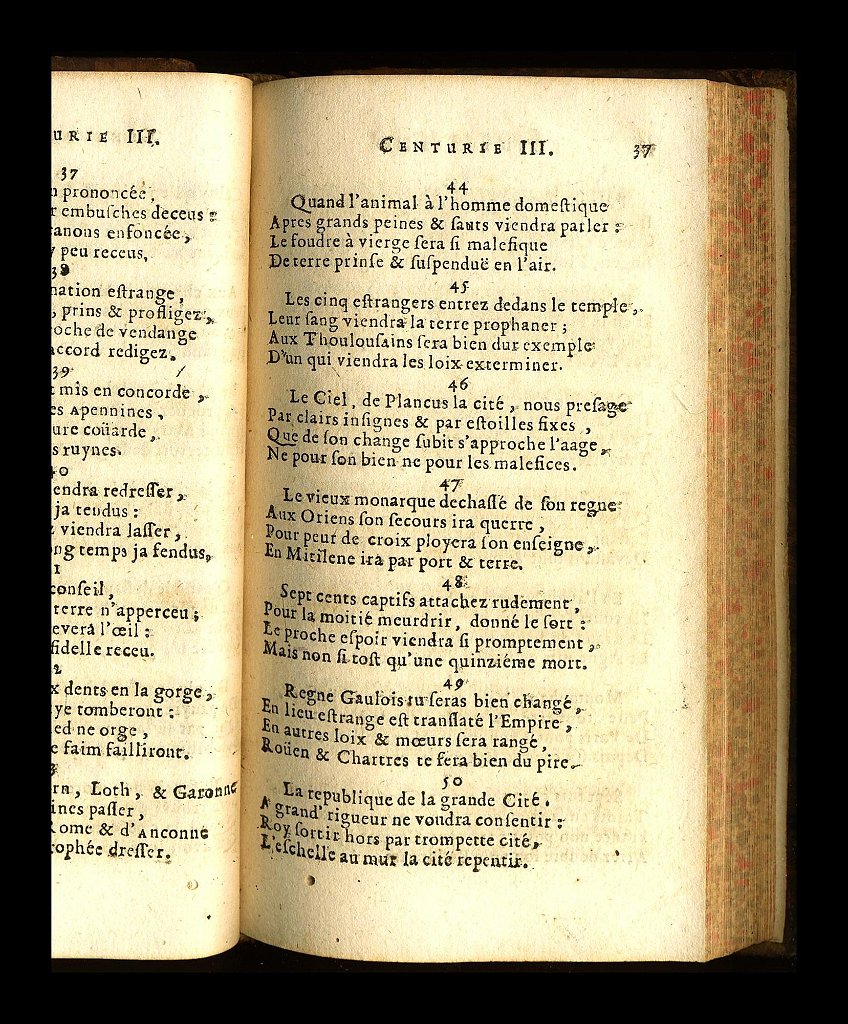 URIE III.
37
prononcée,
embuſches deceus :
anons enfoncée,
peu receus,
38
nation eſtrange,
, prins & profligez,
oche de vendange
accord redigez.
39
mis en concorde,
es Apennines,
ure coüarde,
s ruynes.
40
endra redreſſer,
ja tendus :
viendra laſſer,
ong temps ja fendus,
1
conſeil,
terre n'apperceu ;
evera l'œil :
fidelle receu.
2
x dents en la gorge,
ye tomberont :
ed ne orge,
e faim failliront.
3
rn, Loth, & Garonne
ines paſſer,
Rome & d'Anconne
ophée dreſſer.
CENTURIE III. 37
44
Quand l'animal à l'homme domeſtique
Apres grands peines & ſauts viendra parler :
Le foudre à vierge ſera ſi malefique
De terre prinſe & ſuſpenduë en l'air.
45
Les cinq eſtrangers entrez dedans le temple,
Leur ſang viendra la terre prophaner ;
Aux Thoulouſains ſera bien dur exemple
D'un qui viendra les loix exterminer.
46
Le Ciel, de Plancus la cité, nous preſage
Par clairs inſignes & par eſtoilles fixes,
Que de ſon change ſubit s'approche l'aage,
Ne pour ſon bien ne pour les malefices.
47
Le vieux monarque dechaſſé de ſon regne
Aux Oriens ſon ſecours ira querre,
Pour peur de croix ployera ſon enſeigne,
En Mitilene ira par port & terre.
48
Sept cents captifs attachez rudement,
Pour la moitié meurdrir, donné le ſort :
Le proche eſpoir viendra ſi promptement,
Mais non ſi toſt qu'une quinziéme mort.
49
Regne Gaulois tu ſeras bien changé,
En lieu eſtrange eſt tranſlaté l'Empire,
En autres loix & mœurs ſera rangé,
Roüen & Chartres te fera bien du pire.
50
La republique de la grande Cité.
A grand' rigueur ne voudra conſentir :
Roy ſortir hors par trompette cité,
L'eſchelle au mur la cité repentir.